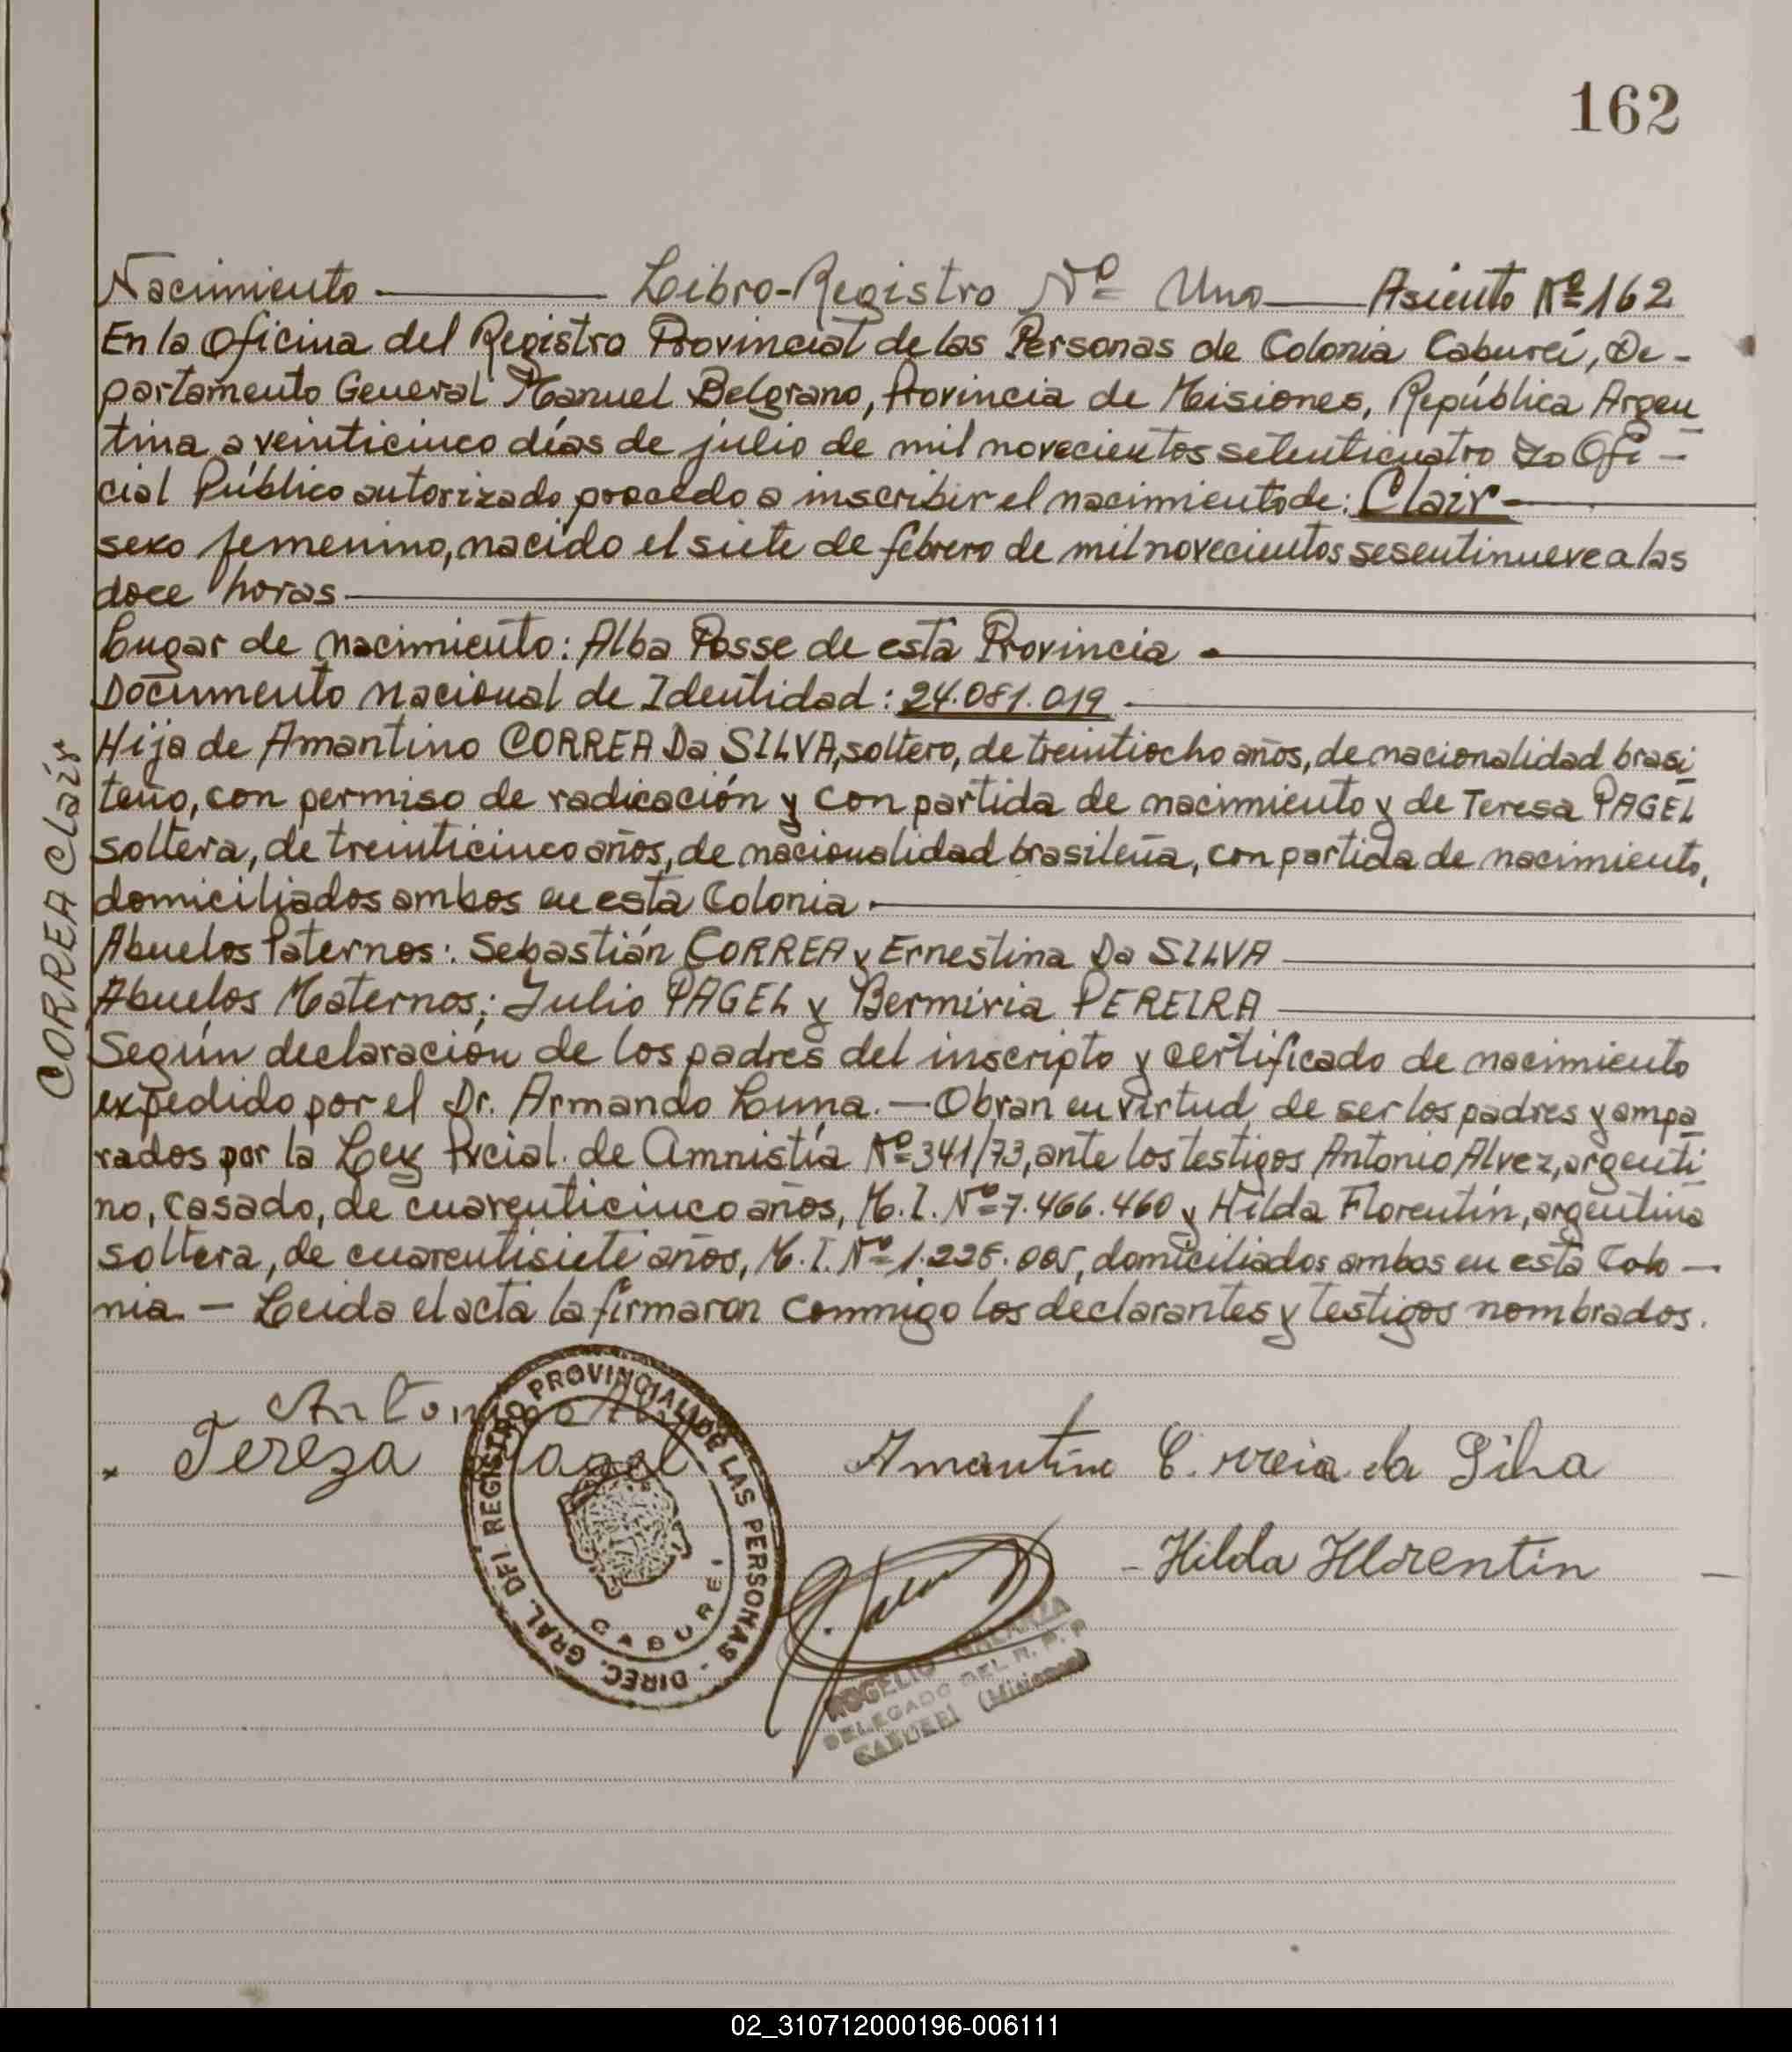 162
Nacimiento — Libro-Registro Nº Uno — Asiento Nº 162
En la Oficina del Registro Provincial de las Personas de Colonia Cabureí, De-
partamento General Manuel Belgrano, Provincia de Misiones, República Argen
tina a veinticinco días de julio de mil novecientos setenticuatro Yo Ofi-
cial Público autorizado procedo a inscribir el nacimiento de: Clair —
sexo femenino, nacido el siete de febrero de mil novecientos sesentinueve a las
doce horas —
Lugar de nacimiento: Alba Posse de esta Provincia —
Documento nacional de Identidad: 24.081.019 —
Hija de Amantino CORREA Da SILVA, soltero, de treintiocho años, de nacionalidad brasi
leño, con permiso de radicación y con partida de nacimiento y de Teresa PAGEL
soltera, de treinticinco años, de nacionalidad brasileña, con partida de nacimiento,
domiciliados ambos en esta Colonia —
Abuelos Paternos: Sebastián CORREA y Ernestina Da SILVA —
Abuelos Maternos: Julio PAGEL y Bermiria PEREIRA —
Según declaración de los padres del inscripto y certificado de nacimiento
expedido por el Dr. Armando Luna. — Obran en virtud de ser los padres y ampa
rados por la Ley Prcial. de Amnistía Nº 341/73, ante los testigos Antonio Alvez, argenti
no, casado, de cuarenticinco años, M. I. Nº 7.466.460 y Hilda Florentín, argentina
soltera, de cuarentisiete años, M. I. Nº domiciliados ambos en esta Colo —
nia. — Leida el acta la firmaron conmigo los declarantes y testigos nombrados.
CORREA Clair
Antonio
Tereza Pagel
Amantino Correia da Silva
- Hilda Florentin
DIREC. GRAL. DEL REGISTRO PROVINCIAL DE LAS PERSONAS -
CABUREI
ROGELIO GALARZA
DELEGADO DEL R. P. P
CABUREI (Misiones)
02_310712000196-006111